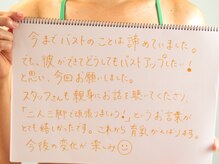 今までバストのことは諦めていました。
でも、彼ができてどうしてもバストアップしたい！
と思い、今回お願いしました。
スタッフさんも親身にお話を聴いてくださり、
「二人三脚で頑張りましょう！」というお言葉が
とても嬉しかったです。これから育乳がんばります。
今後の変化が楽しみ